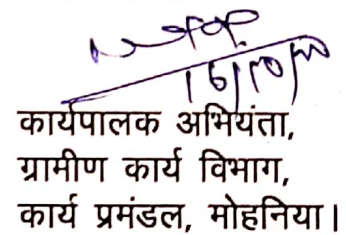 कार्यपालक अभियंता,
ग्रामीण कार्य विभाग,
कार्य प्रमंडल, मोहनिया।